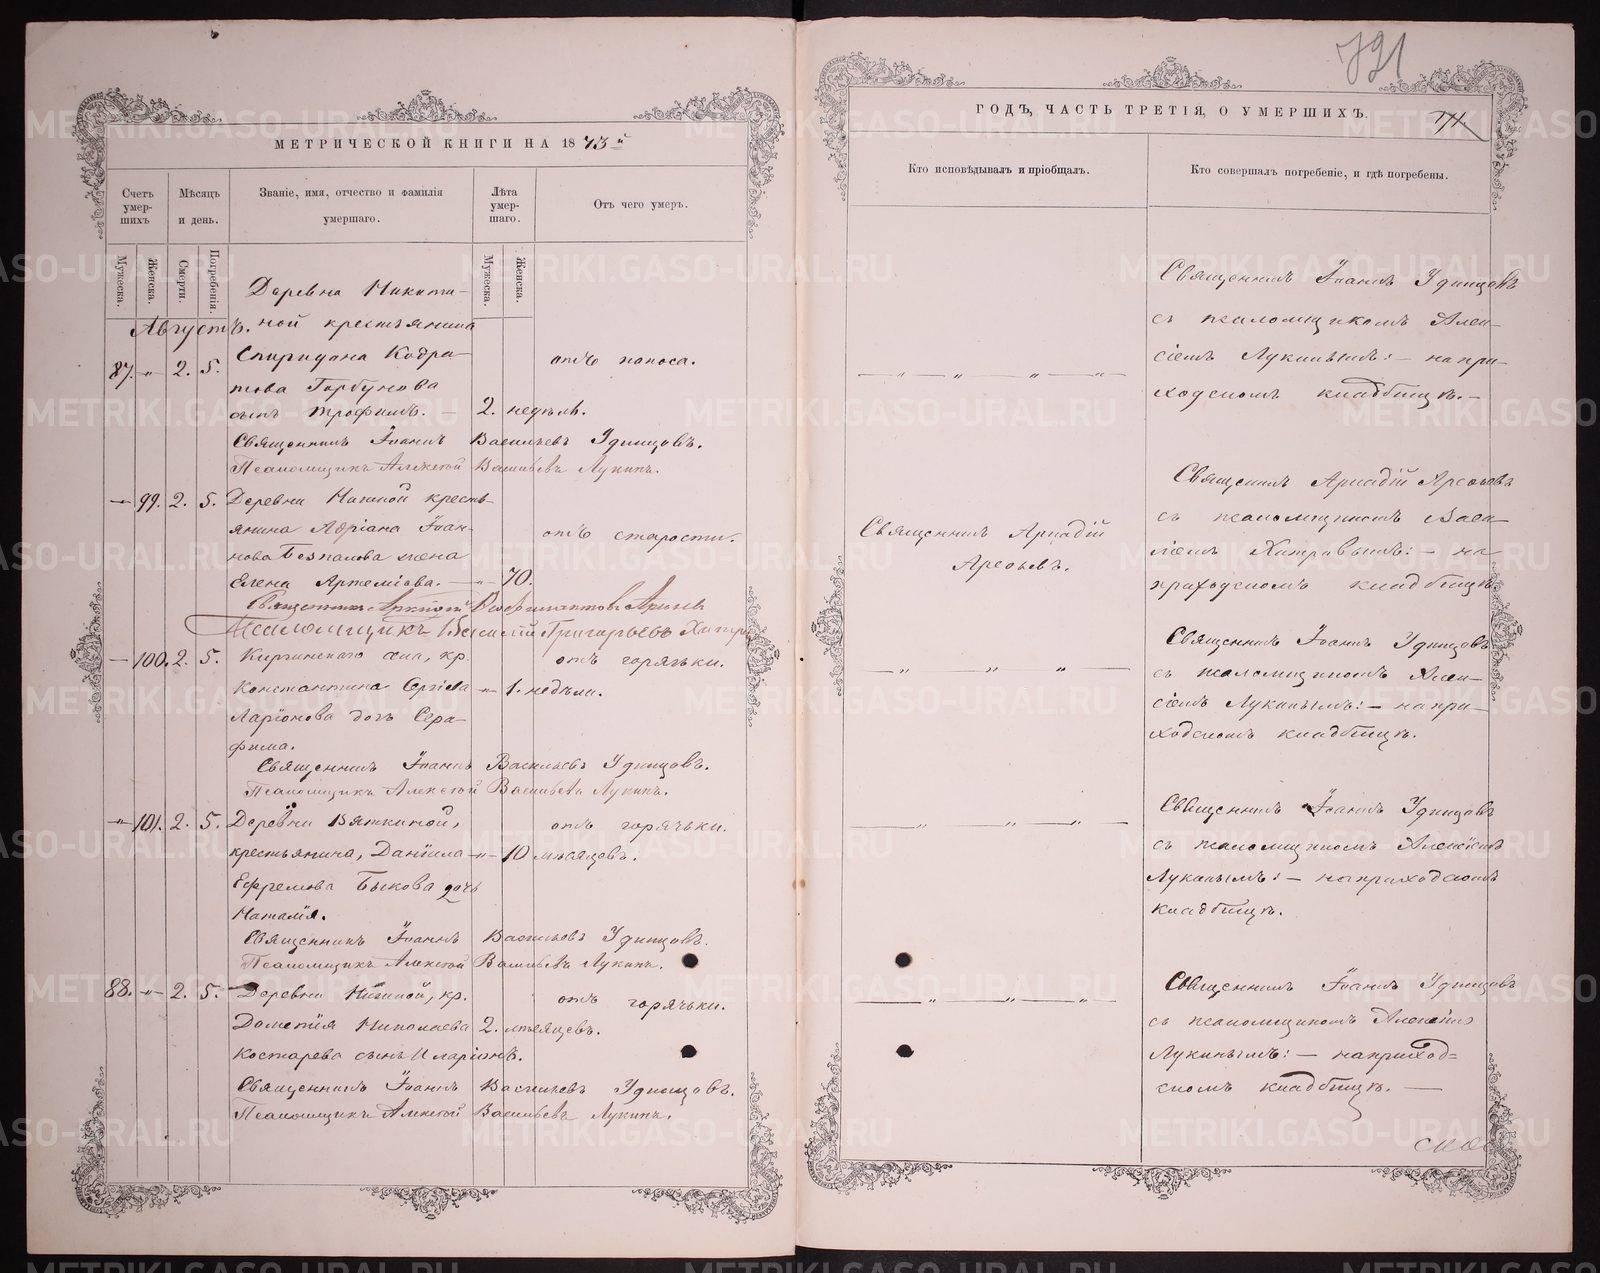 МЕТРИЧЕСКОЙ КНИГИ НА 1873й
Счетъ умер-шихъ
Мѣсяцъ и день.
Званіе, имя, отчество и фамилія умершаго.
Лѣта умер-шаго.
Отъ чего умеръ.
Мужеска.
Женска.
Смерти.
Погребенія.
Мужеска.
Женска.
Августъ.
Деревни Никити-
ной крестьянина
87. — " 2. 5. Спиридона Кодра-
това Горбунова
сынъ Трофимъ. — 2. недѣль.
отъ поноса.
Священникъ Іоаннъ Васильевъ Удинцовъ.
Псаломщикъ Алексѣй Васильевъ Лукинъ.
— " 99. 2. 5. Деревни кресть-
янина Адріана Іоан-
нова Безпалова жена
Елена Артеміева. — " — 70.
отъ старости.
Священникъ Аркадій
Псаломщикъ Василій Григорьевъ
— 100. 2. 5. Киргинскаго села, кр.
Константина Сергіева — " — 1. недѣли.
Ларіонова дочь Сера-
фима.
отъ горячки.
Священникъ Іоаннъ Васильевъ Удинцовъ.
Псаломщикъ Алексѣй Васильевъ Лукинъ.
— " 101. 2. 5. Деревни Вяткиной,
крестьянина, Даніила — " — 10 мѣсяцовъ.
Ефремова Быкова дочь
Наталія.
отъ горячьки.
Священникъ Іоаннъ Васильевъ Удинцовъ.
Псаломщикъ Алексѣй Васильевъ Лукинъ.
88. — " — 2. 5. Деревни кр.
Дометія Николаева 2. мѣсяцевъ.
Костарева сынъ Иларіонъ.
отъ горячьки.
Священникъ Іоаннъ Васильевъ Удинцовъ.
Псаломщикъ Алексѣй Васильевъ Лукинъ.
791
ГОДЪ, ЧАСТЬ ТРЕТІЯ, О УМЕРШИХЪ.
Кто исповѣдывалъ и пріобщалъ.
Кто совершалъ погребеніе, и гдѣ погребены.
Священникъ Іоаннъ Удинцовъ
съ псаломщикомъ Алек-
сіемъ Лукинымъ: — на при-
ходскомъ кладбищѣ. —
Священникъ Аркадій
Священникъ Аркадій
съ псаломщикомъ Васи-
ліемъ Хитровымъ: — на
приходскомъ кладбищѣ
Священникъ Іоаннъ Удинцовъ
съ псаломщикомъ Алек-
сіемъ Лукинымъ: — на при-
ходскомъ кладбищѣ.
Священникъ Іоаннъ Удинцовъ
съ псаломщикомъ Алексіемъ
Лукинымъ: — на приходскомъ
кладбищѣ.
Священникъ Іоаннъ Удинцовъ
съ псаломщикомъ Алексіемъ
Лукинымъ: — на приход=
скомъ кладбищѣ. —
METRIKI.GASO-URAL.RU